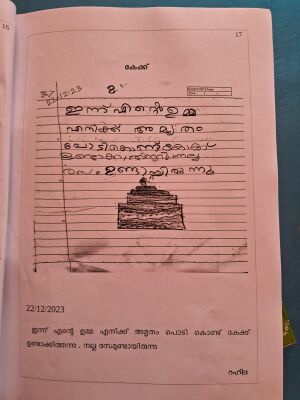 16
17
കേക്ക്
22-12-23
ഇന്ന് എൻ്റെ ഉമ്മ
എനിക്ക് അമൃതം
പോടികൊണ്ട് കേക്ക്
ഉണ്ടാക്കിത്തന്നു നല്ല
രസം ഉണ്ടായിരുന്നു
22/12/2023
ഇന്ന് എന്റെ ഉമ്മ എനിക്ക് അമൃതം പൊടി കൊണ്ട് കേക്ക്
ഉണ്ടാക്കിത്തന്നു . നല്ല രസമുണ്ടായിരുന്നു
റഹ്‌ല